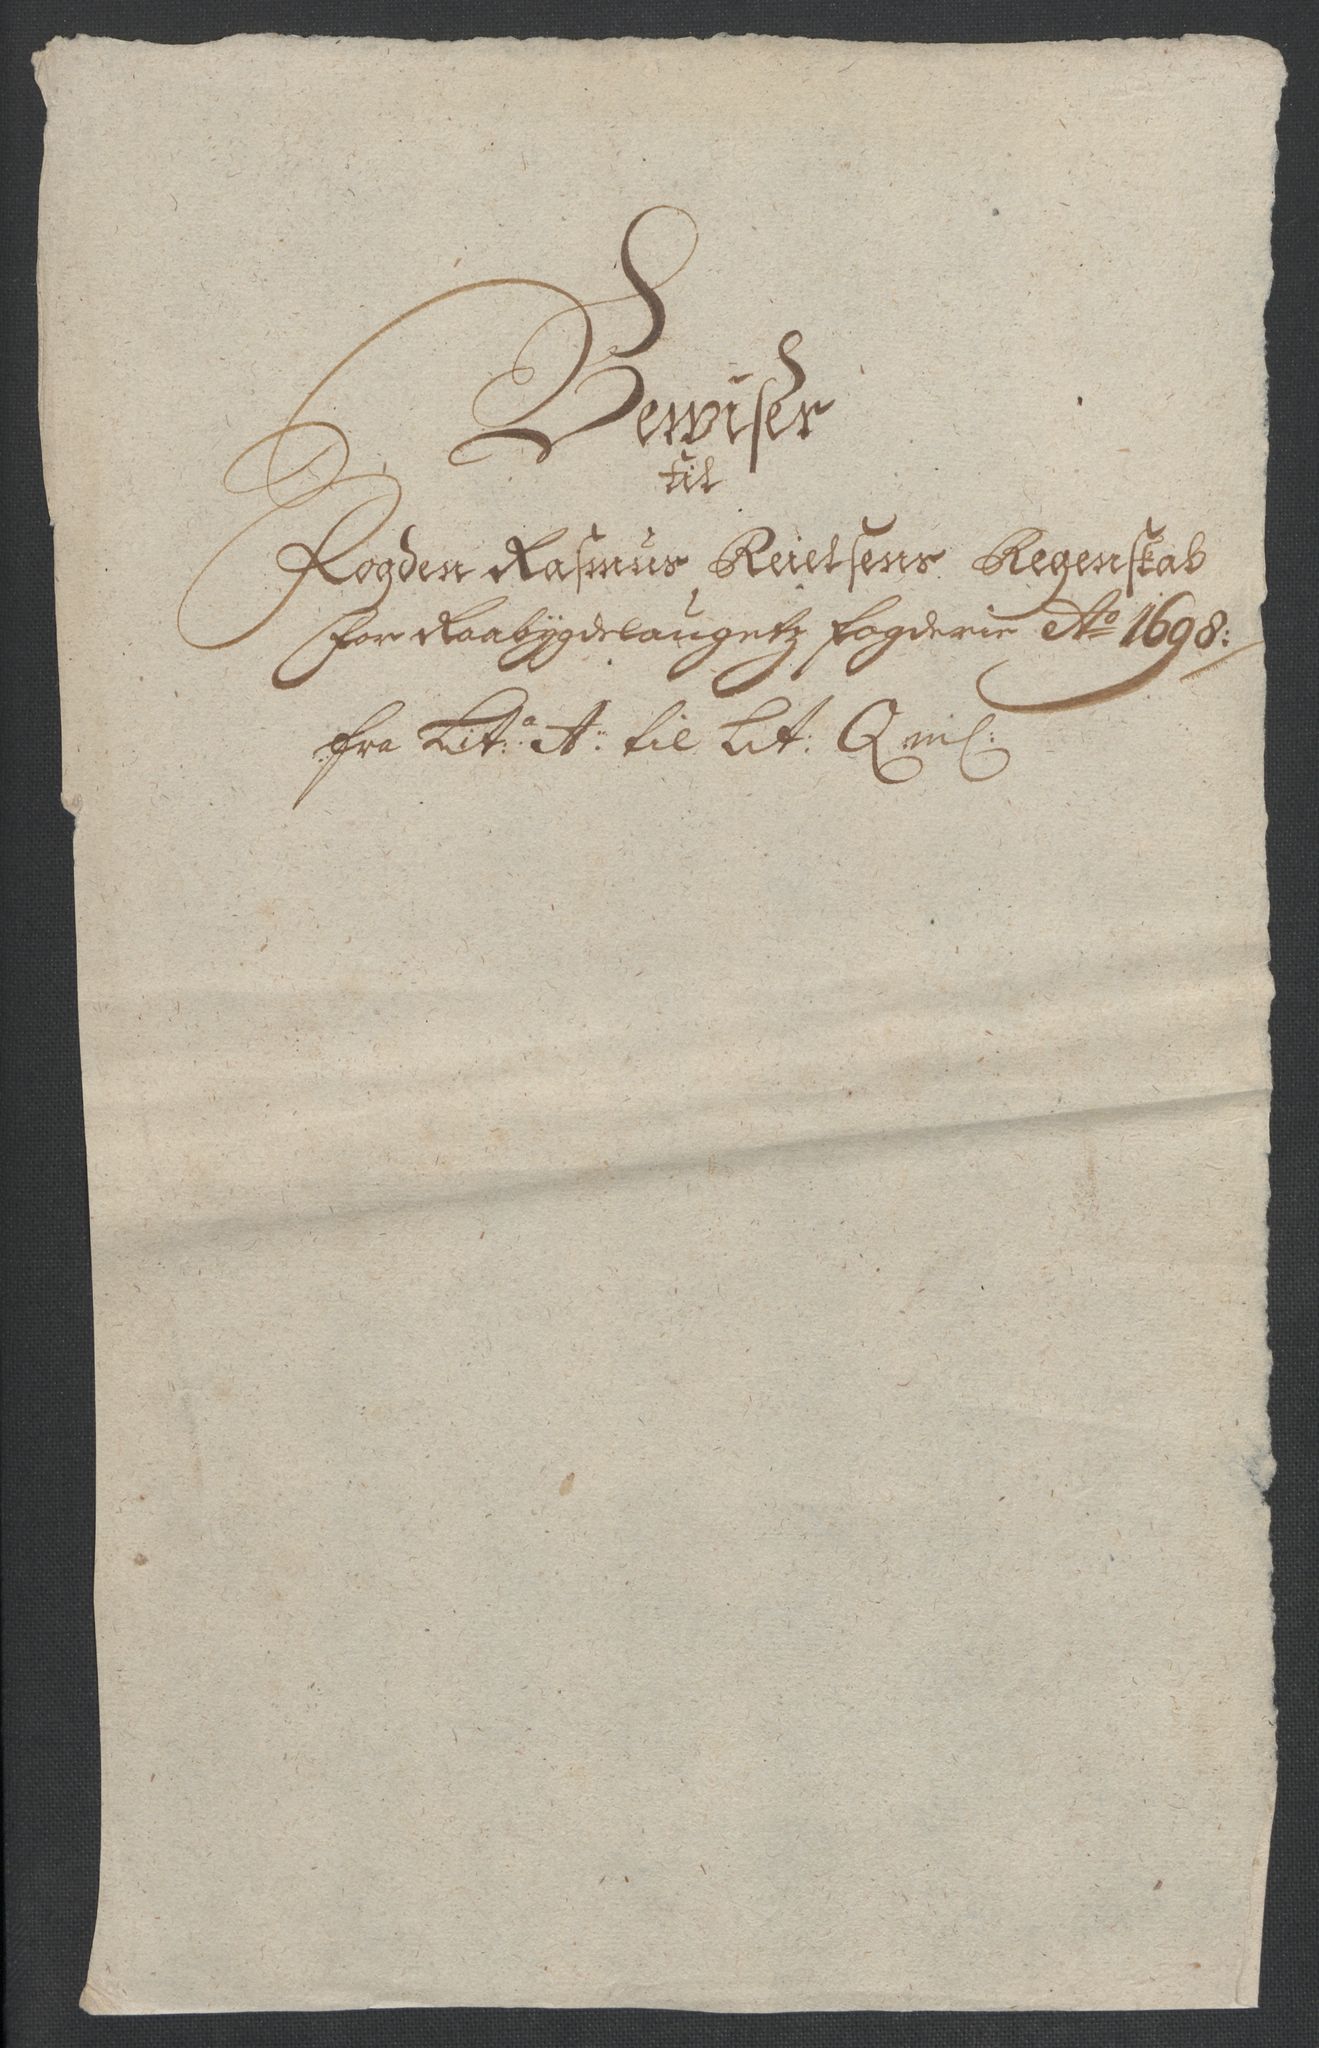 Bewiser
til
Fogden Rasmus Keielsens Regenskab
for Raabygdelaugetz fogderie Ao 1698:
fra Lit:a A: til Lit: Q incl: